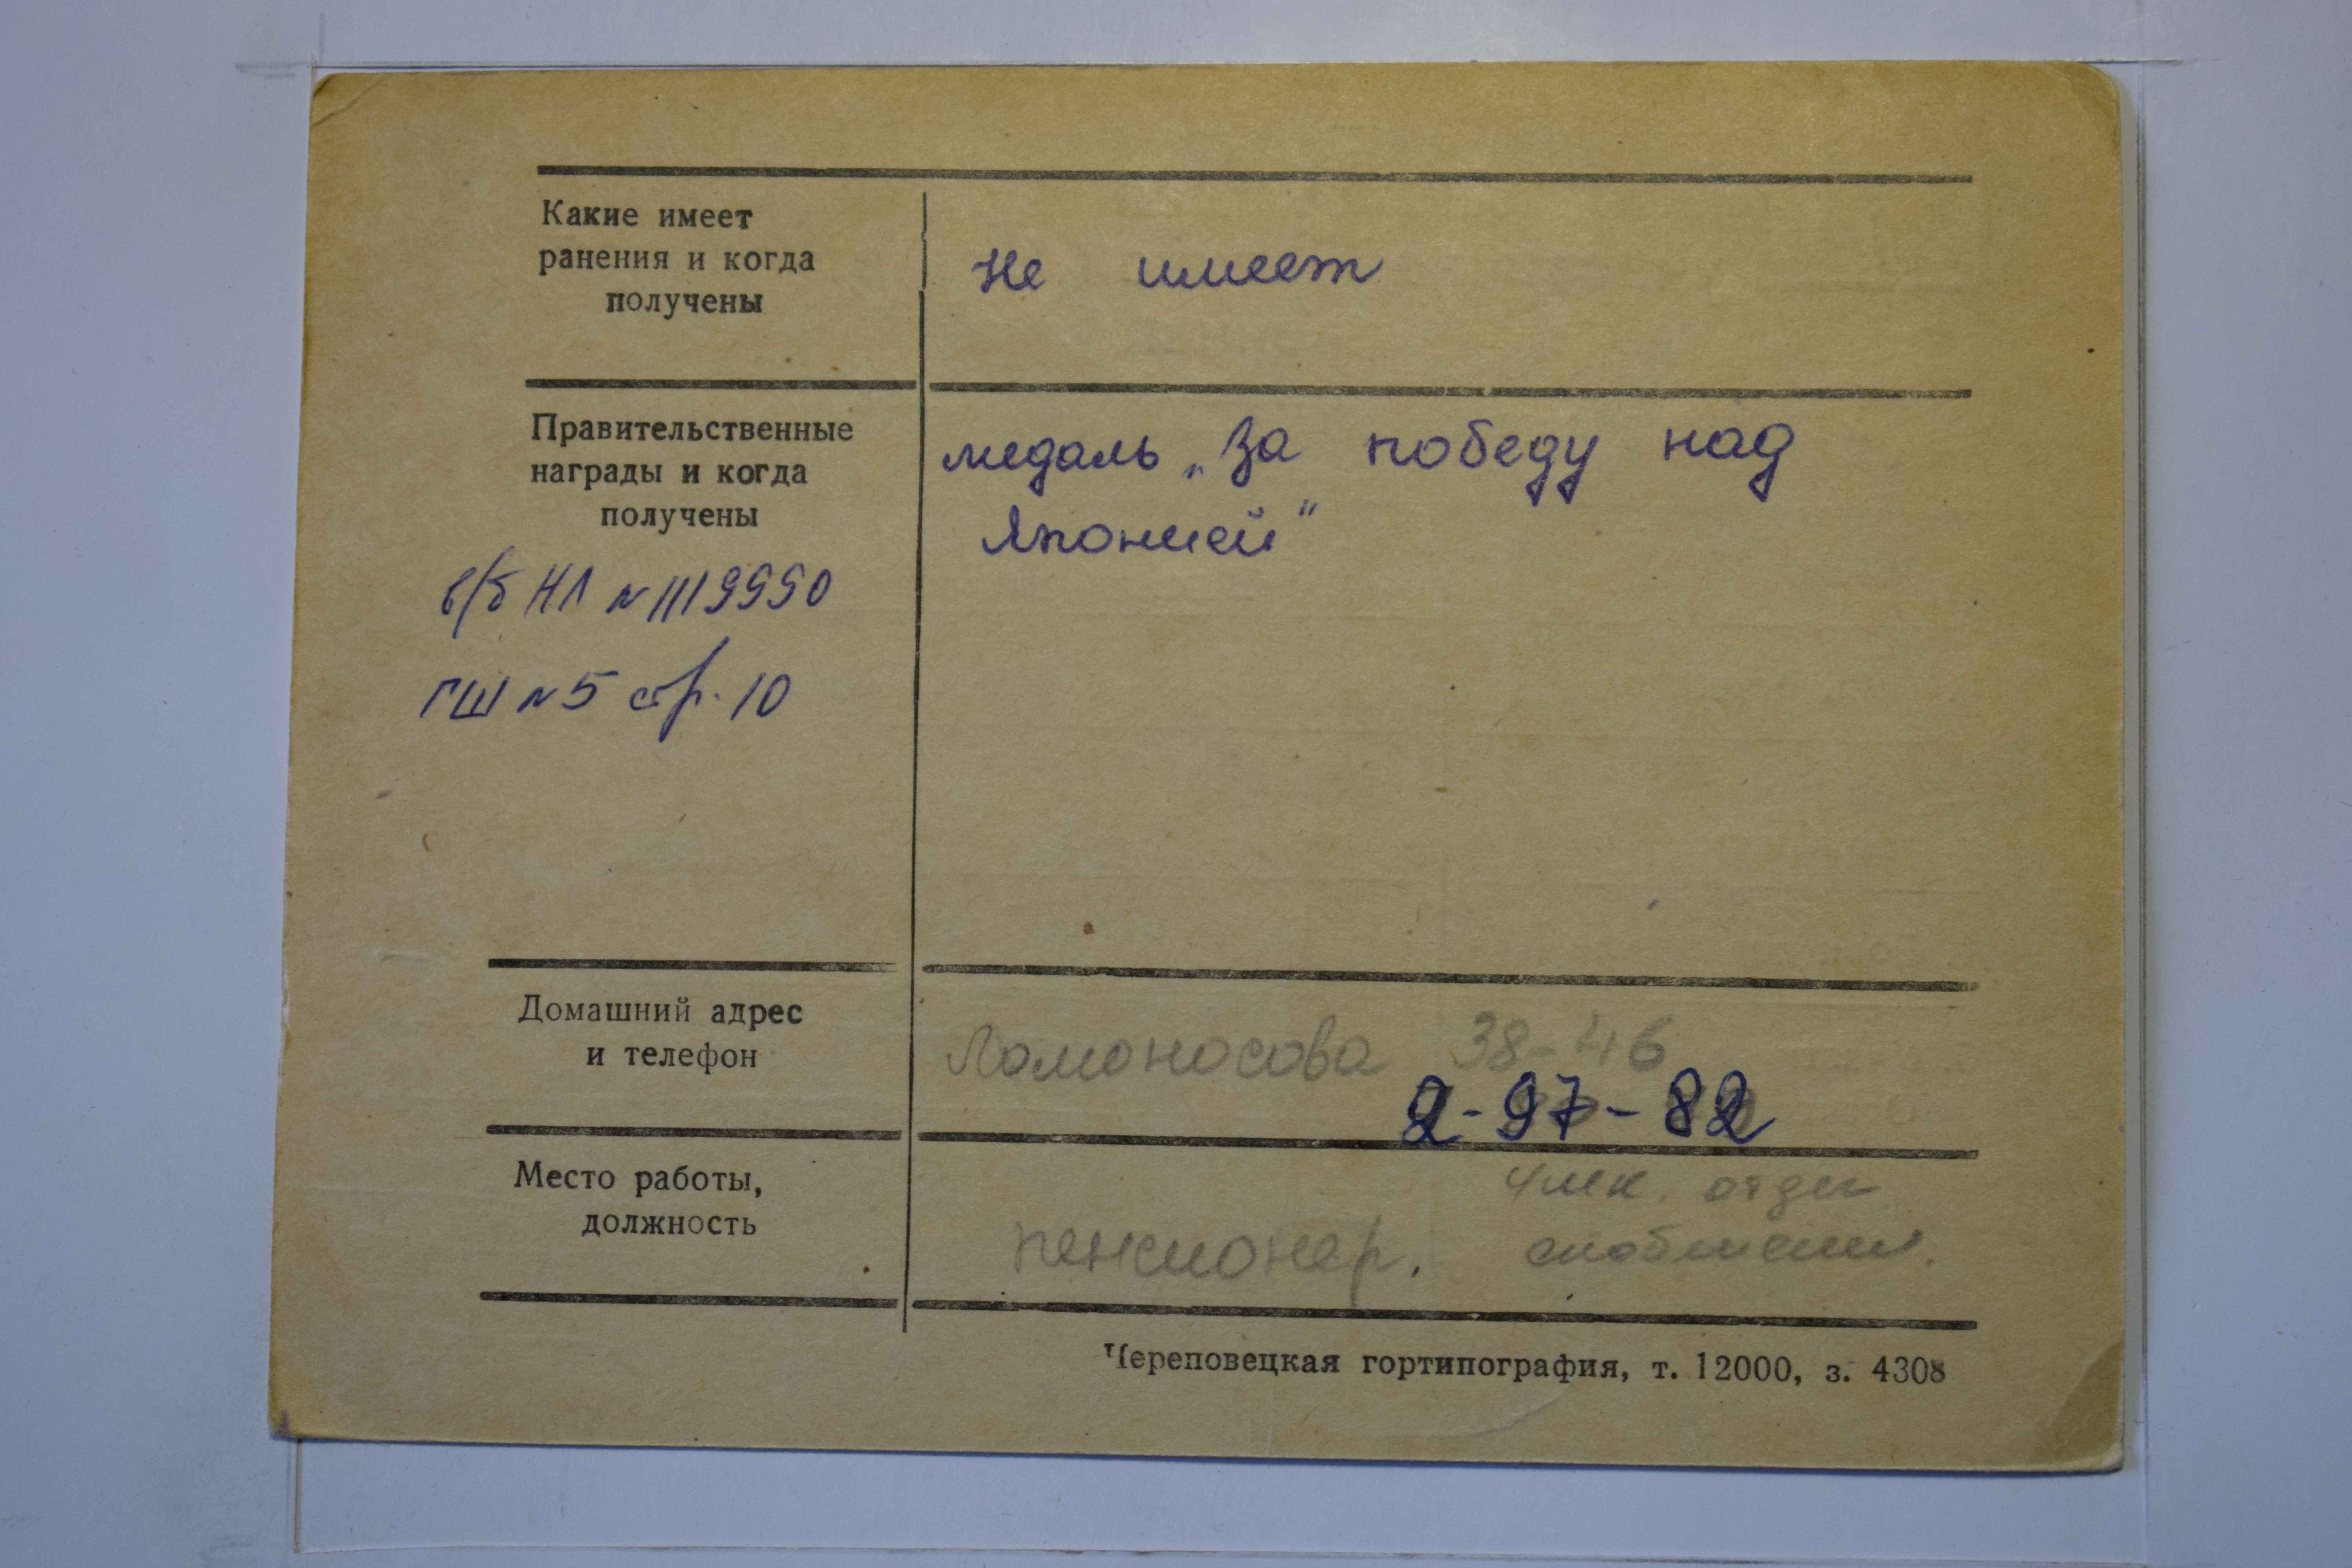 Какие имеет
ранения и когда
получены
не имеет
Правительственные
награды и когда
получены
медаль „За победу над
Японией“
в/б НЛ № 1119990
ГШ №5 стр. 10
Домашний адрес
и телефон
Ломоносова 38-46
2-97-82
Место работы,
должность
пенсионер.
чмк. отдел
снабжения.
Череповецкая гортипография, т. 12000, з. 4308